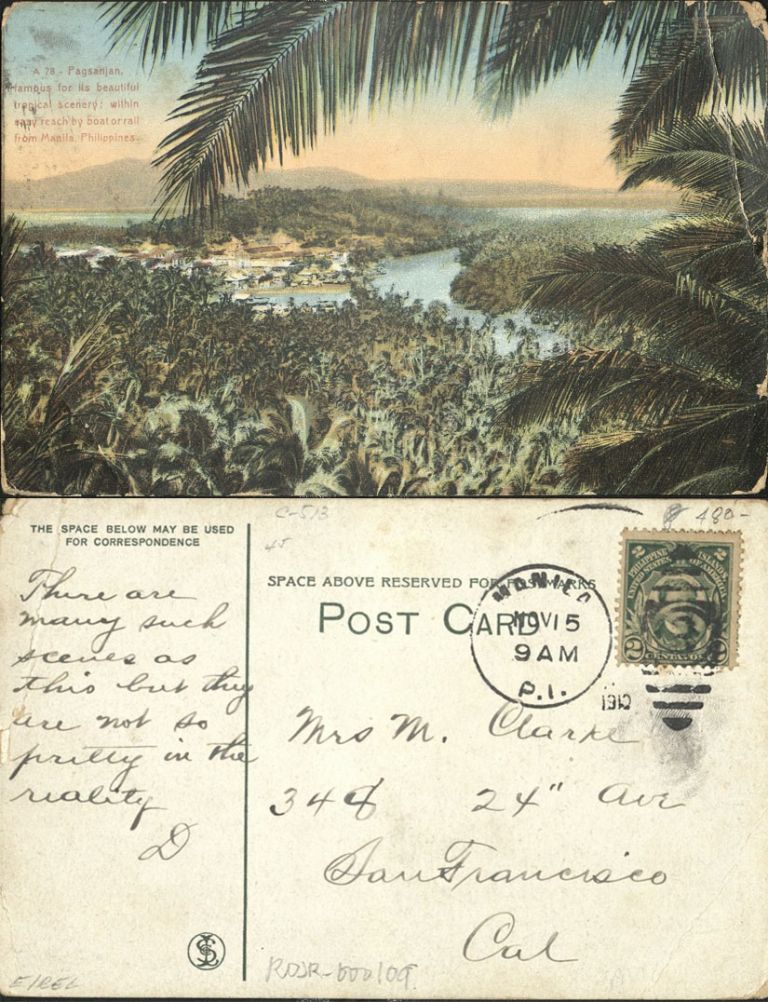 A 78 - Pagsanjan,
famous for its beautiful
tropical scenery; within
easy reach by boat or rail
from Manila, Philippines.
C-513
480-
45
THE SPACE BELOW MAY BE USED
FOR CORRESPONDENCE
SPACE ABOVE RESERVED FOR POSTMARKS
POST CARD
MANILA
NOV 15
9 AM
P.I.
PHILIPPINE ISLANDS
UNITED STATES OF AMERICA
2 CENTAVOS 2
There are
many such
scenes as
this but they
are not so
pretty in the
reality
D
Mrs M. Clarke
348 24" Ave
San Francisco
Cal
ROJR-000109